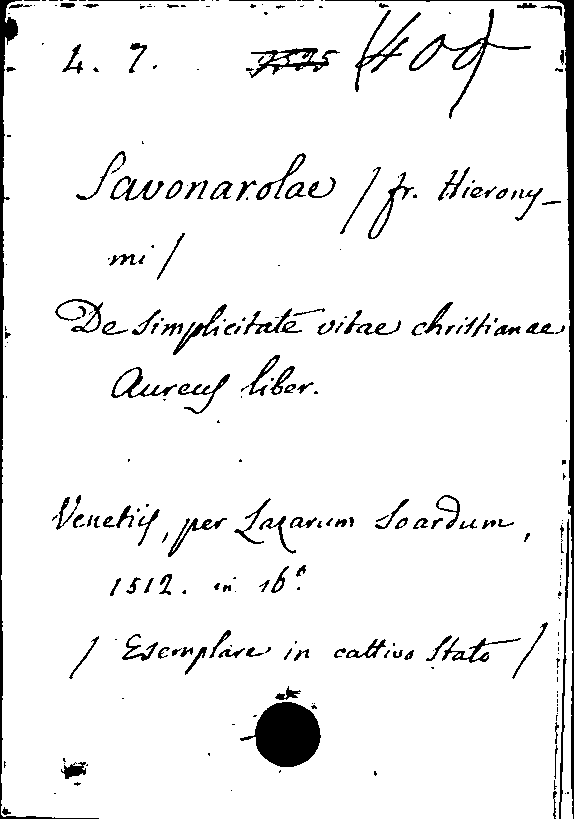 4. 7. 7525 (400)
Savonarolae / fr. Hierony-
mi /
De simplicitate vitae christianae
Aureus liber.
Venetiis, per Lazarum Soardum,
1512. in 16°.
/ Esemplare in cattivo stato /